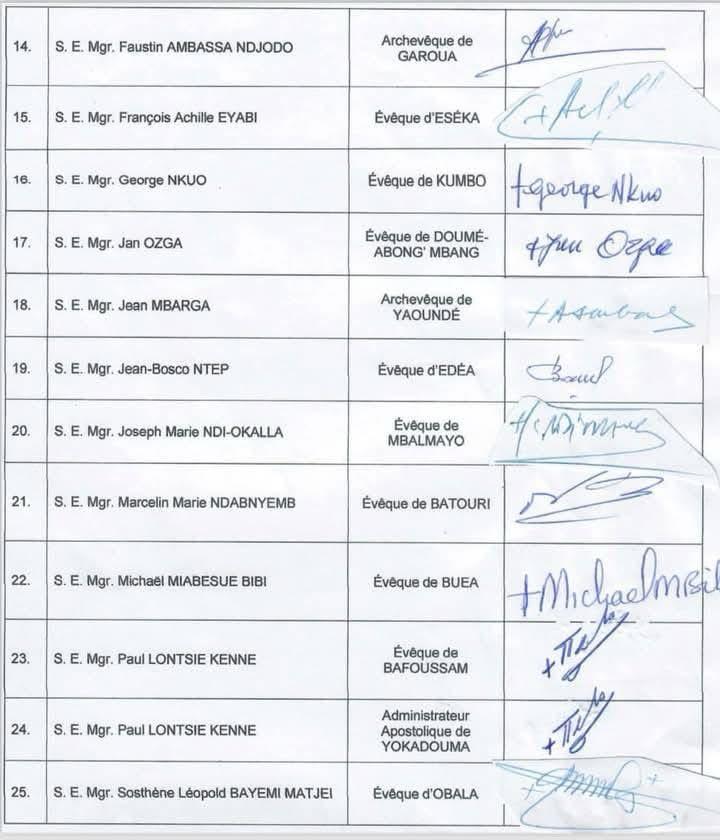 14. S. E. Mgr. Faustin AMBASSA NDJODO
Archevêque de
GAROUA
15. S. E. Mgr. François Achille EYABI
Évêque d'ESÉKA
16. S. E. Mgr. George NKUO
Évêque de KUMBO
+George Nkuo
17. S. E. Mgr. Jan OZGA
Évêque de DOUMÉ-
ABONG' MBANG
+Jan Ozga
18. S. E. Mgr. Jean MBARGA
Archevêque de
YAOUNDÉ
19. S. E. Mgr. Jean-Bosco NTEP
Évêque d'EDÉA
20. S. E. Mgr. Joseph Marie NDI-OKALLA
Évêque de
MBALMAYO
21. S. E. Mgr. Marcelin Marie NDABNYEMB
Évêque de BATOURI
22. S. E. Mgr. Michaël MIABESUE BIBI
Évêque de BUEA
+Michael M Bibi
23. S. E. Mgr. Paul LONTSIE KENNE
Évêque de
BAFOUSSAM
24. S. E. Mgr. Paul LONTSIE KENNE
Administrateur
Apostolique de
YOKADOUMA
25. S. E. Mgr. Sosthène Léopold BAYEMI MATJEI
Évêque d'OBALA